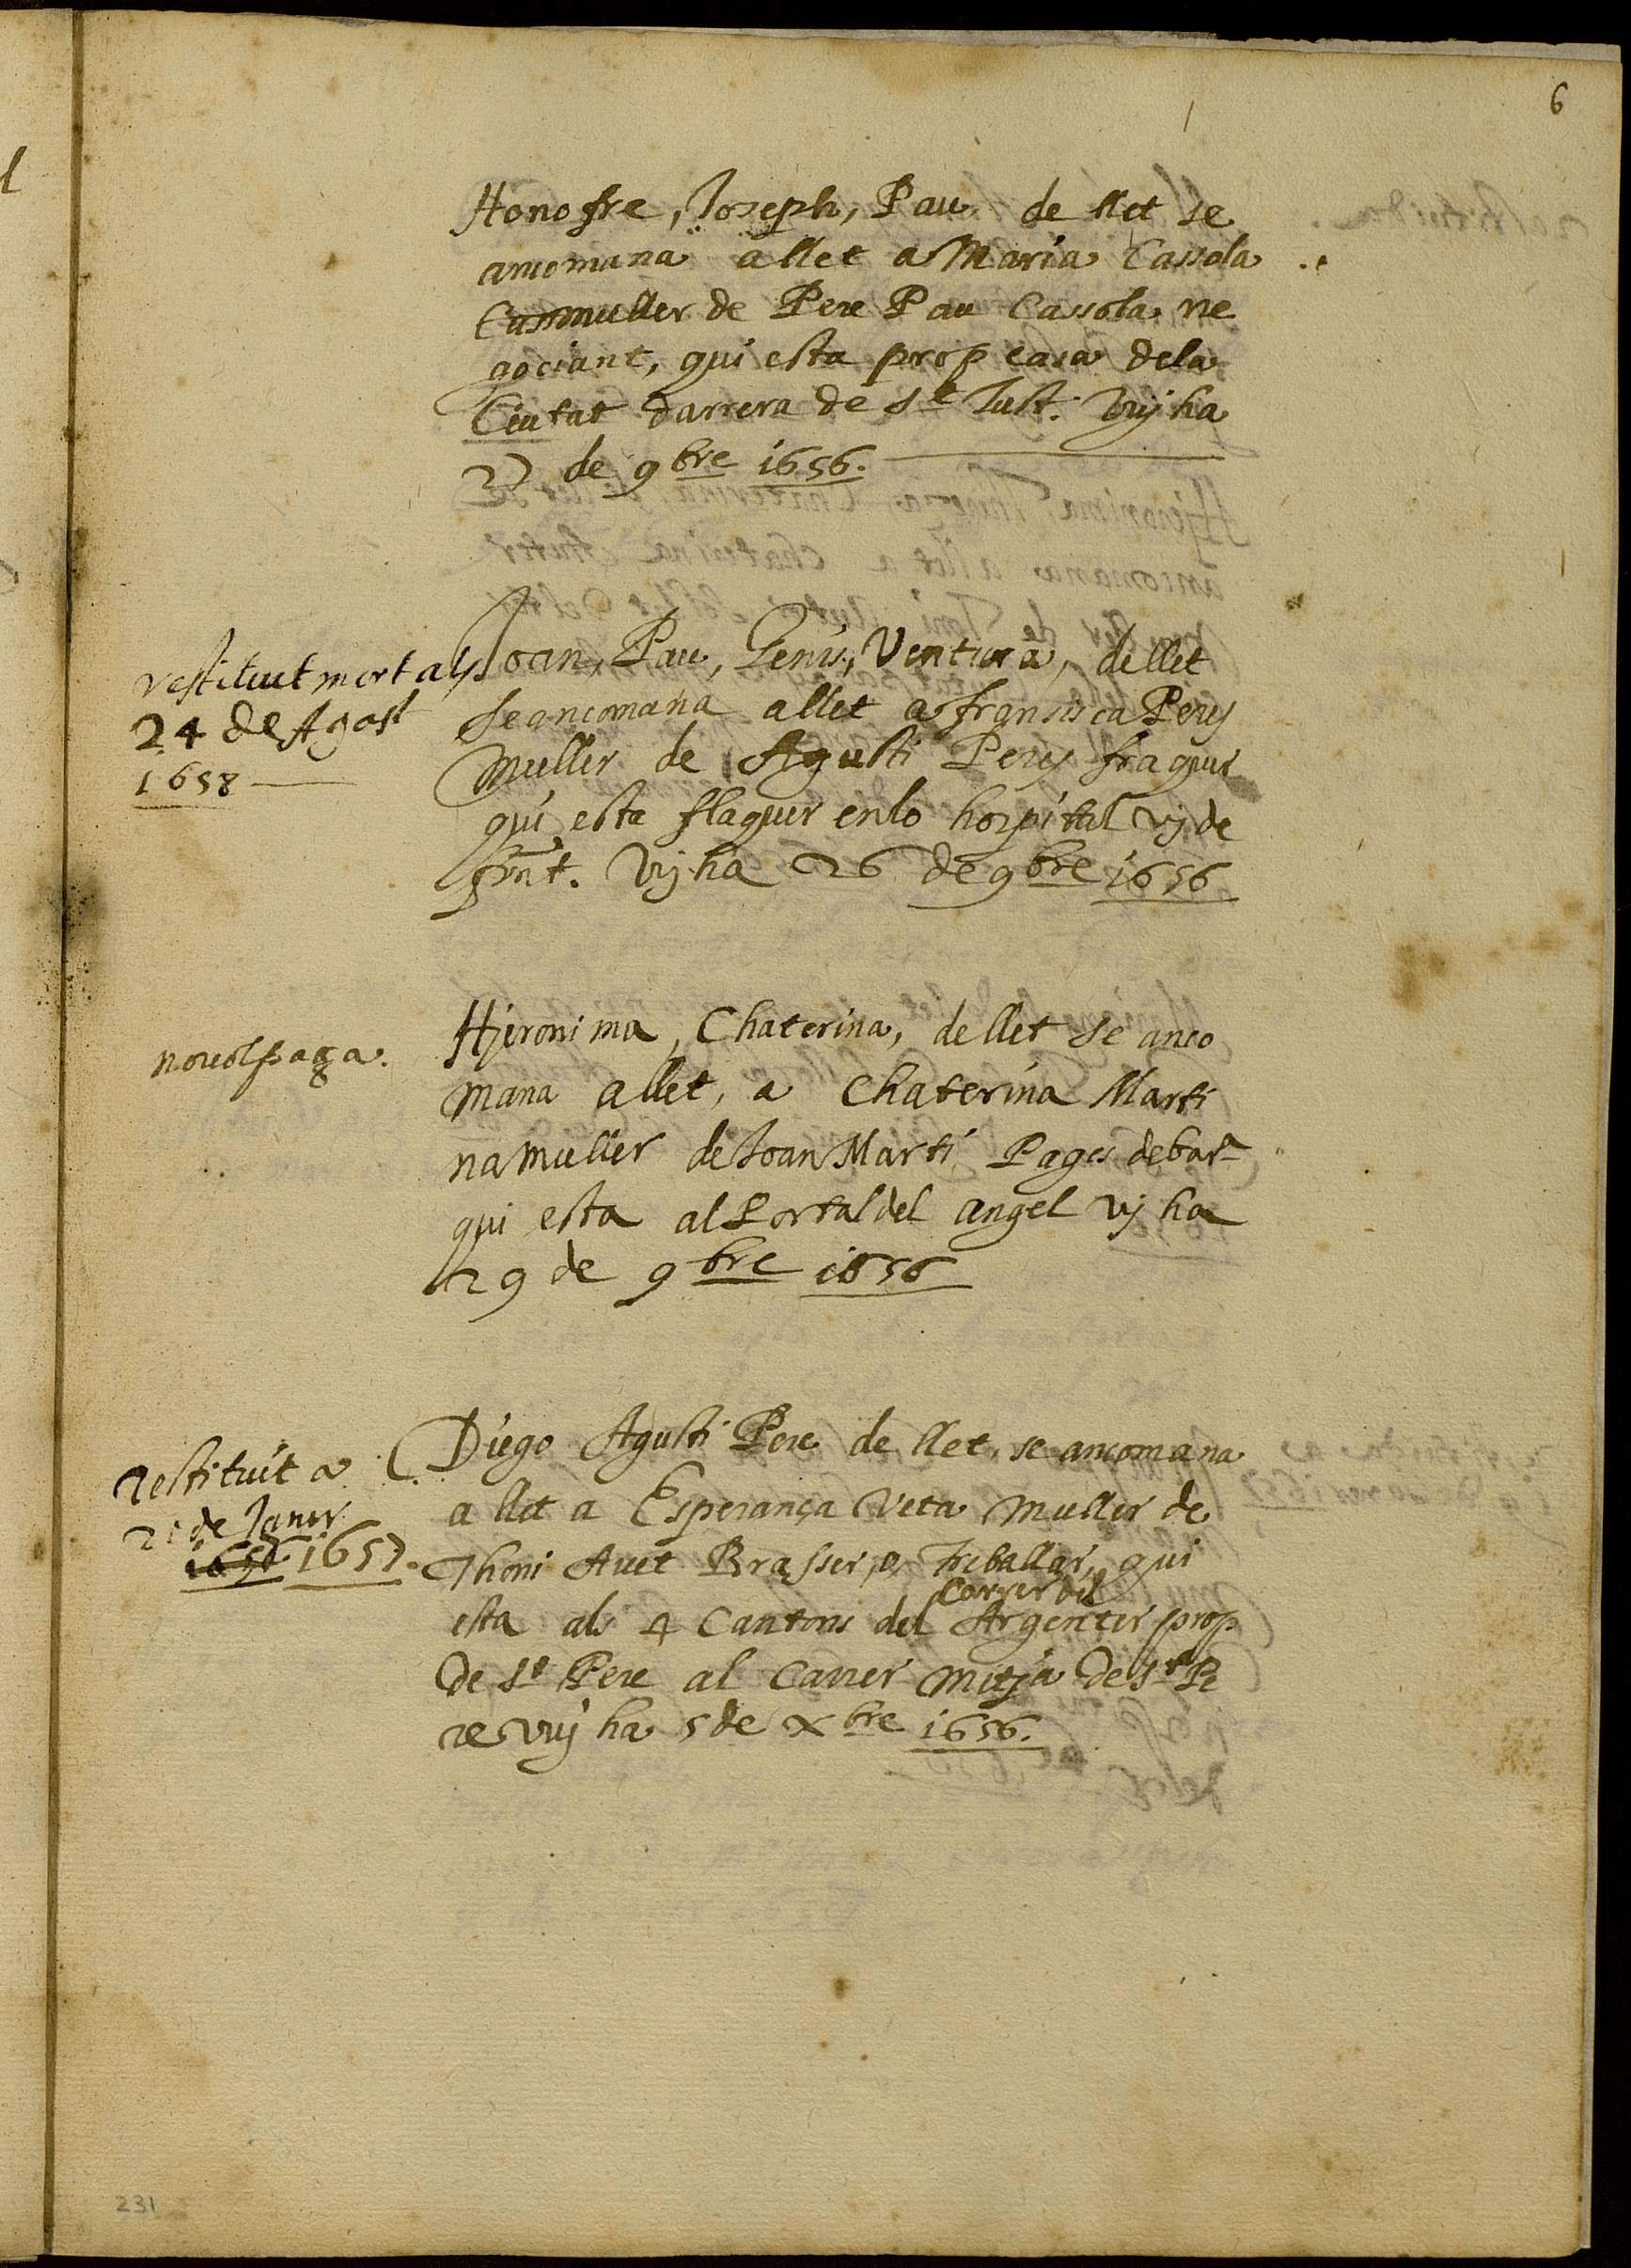 6
Honofre, Joseph, Pau de llet se
ancomana a llet a Maria Cassola
muller de Pere Pau Cassola ne
gociant, qui esta prop casa dela
Ciutat darrera de St Just. Vuy ha
27 de 9bre 1656.
restituit mort als
24 de Agost
1658
Joan, Pau, Genis, Ventura, de llet
se ancomana allet a fransisca Perey
Muller de Agusti Perey fraguer
qui esta flaquer enlo hospital vy de
frnt. Vy ha 26 de 9bre 1656
novolpaga.
Hjeronima, Chaterina, dellet se anco
mana allet, a Chaterina Marti
na muller de Joan Marti Pages de bar
qui esta al Portal del angel vy ha
29 de 9bre 1656
restituit a
21 de Janer
1656 1657.
Diego Agusti Pere de llet, se ancomana
a llet a Esperança Veta Muller de
Thoni Avet Brasser, o, treballar, qui
Correr del
esta als 4 Cantons del Argenter prop
de St Pere al Carrer Mitja de St Pe
re vuy ha 5 de Xbre 1656.
231